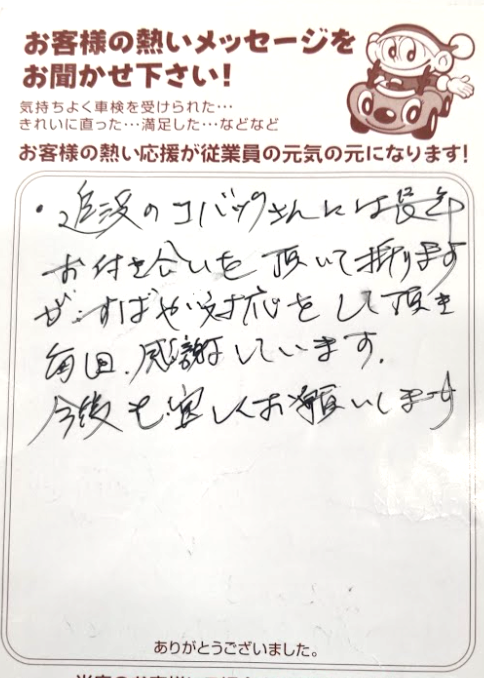 お客様の熱いメッセージを
お聞かせ下さい!
気持ちよく車検を受けられた…
きれいに直った…満足した…などなど
お客様の熱い応援が従業員の元気の元になります!
・追浜のコバックさんには長年
お付き合いを頂いて折ります
が、すばやい対応をして頂き
毎回、感謝しています。
今後も宜しくお願いします
ありがとうございました。